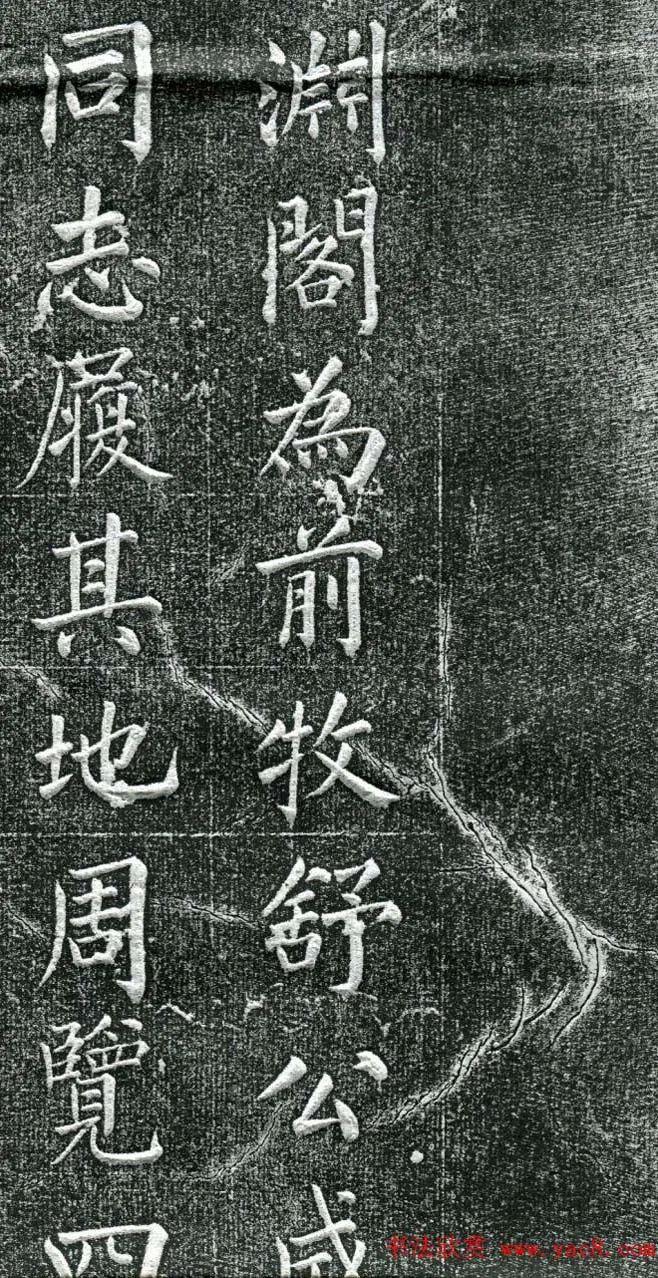 淵閣為前牧舒公成
同志履其地周覽四
书法欣赏 www.yac8.com